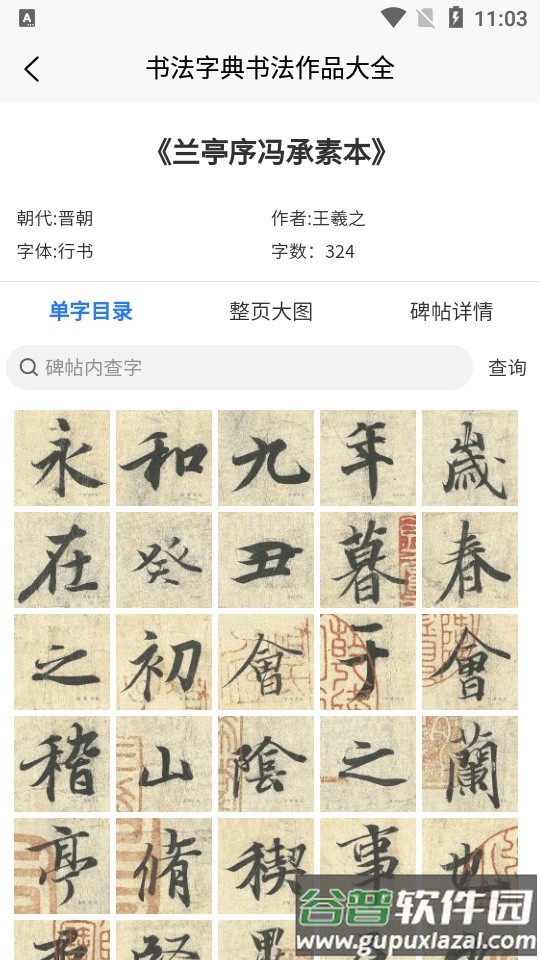 A
11:03
书法字典书法作品大全
《兰亭序冯承素本》
朝代:晋朝
作者:王羲之
字体:行书
字数：324
单字目录
整页大图
碑帖详情
碑帖内查字
查询
永和九年歲
在癸丑暮春
之初會于會
稽山陰之蘭
亭脩稧事也
谷普软件园
www.gupuxlazal.com